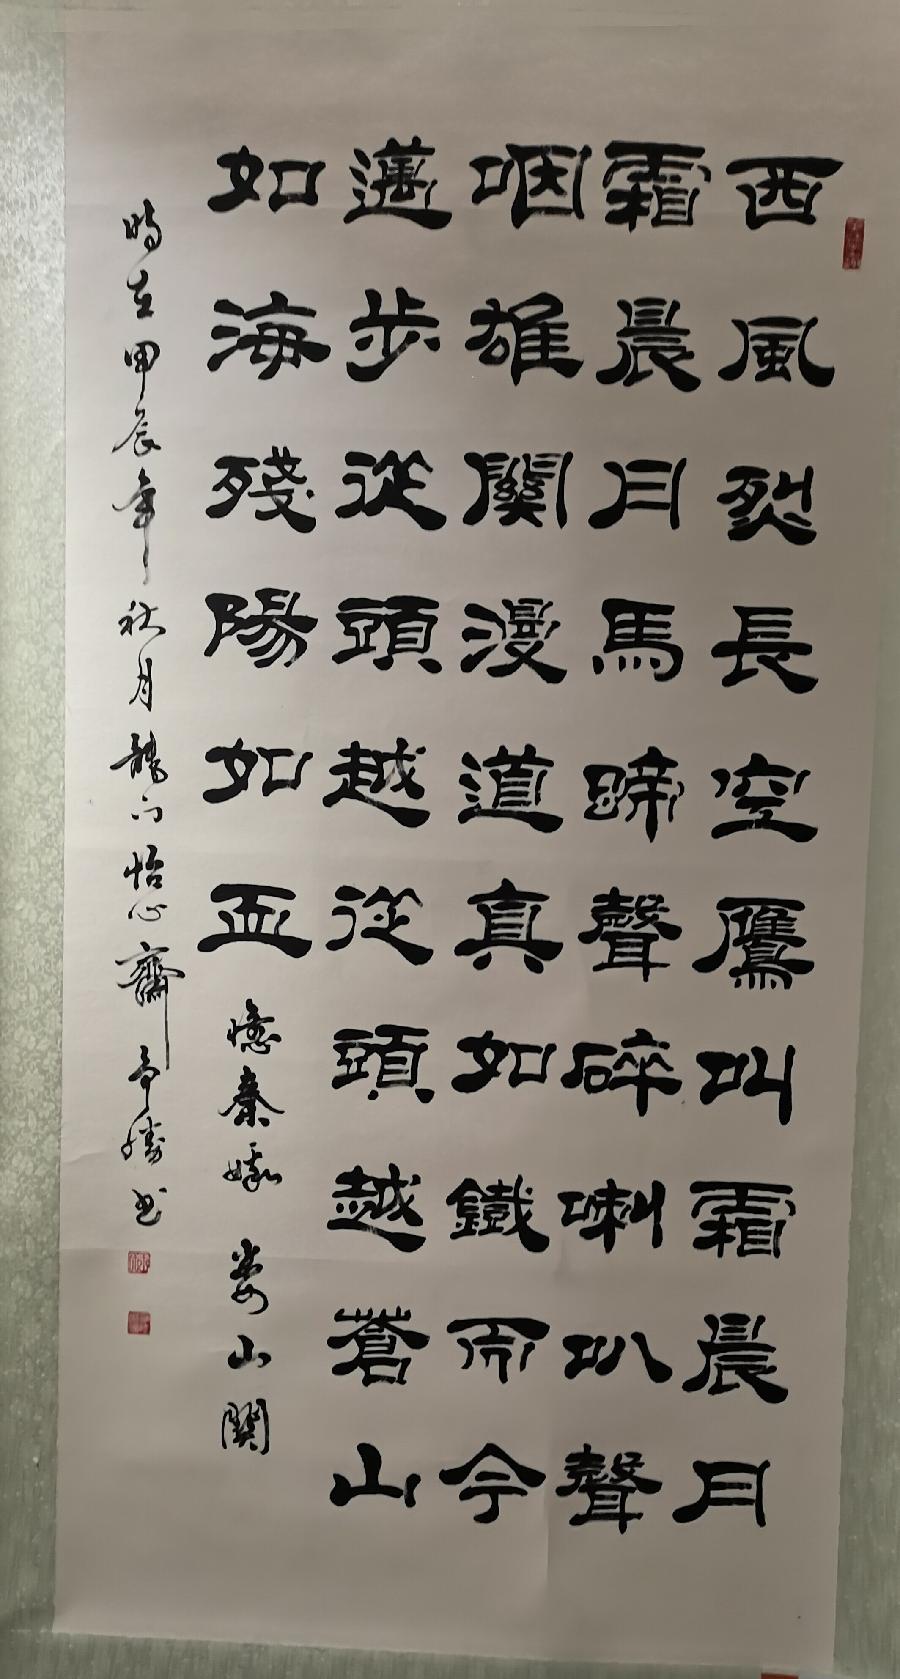 西風烈長空鷹叫霜晨月
霜晨月馬蹄聲碎喇叭聲
咽雄關漫道真如鐵而今
邁步從頭越從頭越蒼山
如海殘陽如血
憶秦娥 婁山關
時在甲辰年秋月龍門怡心齋